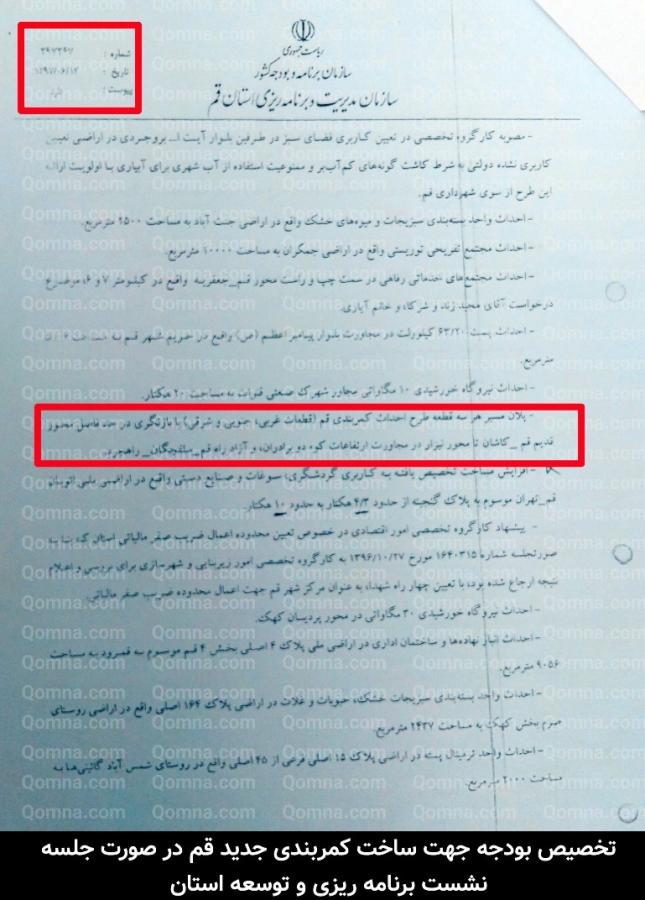 ریاست جمهوری
سازمان برنامه و بودجه کشور
سازمان مدیریت و برنامه ریزی استان قم
شماره :
تاریخ : ۱۳۹۷/۰۶/۱۲
پیوست : دارد
- مصوبه کارگروه تخصصی در تعیین کاربری فضای سبز در طرفین بلوار آیت ا... بروجردی در اراضی تعیین
کاربری نشده دولتی به شرط کاشت گونه‌های کم‌آب‌بر و ممنوعیت استفاده از آب شهری برای آبیاری با اولویت ارائه
این طرح از سوی شهرداری قم.
- احداث واحد بسته‌بندی سبزیجات و میوه‌های خشک واقع در اراضی جنت آباد به مساحت ۲۵۰۰ مترمربع.
- احداث مجتمع تفریحی توریستی واقع در اراضی جمکران به مساحت ۱۰۰۰۰ مترمربع.
- احداث مجتمع‌های خدماتی رفاهی در سمت چپ و راست محور قم_جعفریه واقع در کیلومتر ۷ و ۶، موضوع
درخواست آقای مجید زند و شرکا، و خانم آیاری.
- احداث پست ۶۳/۲۰ کیلوولت در مجاورت بلوار پیامبر اعظم (ص) واقع در حریم شهر قم به مساحت
مترمربع.
- احداث نیروگاه خورشیدی ۱۰ مگاواتی مجاور شهرک صنعتی قنوات به مساحت ۲۰ هکتار.
- پلان مسیر هر سه قطعه طرح احداث کمربندی قم (قطعات غربی، جنوبی و شرقی) با بازنگری در حد فاصل محور
قدیم قم _ کاشان تا محور نیزار در مجاورت ارتفاعات کوه دو برادران، و آزاد راه قم_سلفچگان_
- افزایش مساحت تخصیص یافته به کاربری گردشگری) سوغات و صنایع دستی واقع در اراضی ملی اتوبان
قم_تهران موسوم به پلاک گنجینه از حدود ۴/۳ هکتار به حدود ۱۰ هکتار.
- پیشنهاد کارگروه تخصصی امور اقتصادی در خصوص تعیین محدوده اعمال ضریب صفر مالیاتی استان که بنا به
صورتجلسه شماره ۱۶۴۰۳۱۵ مورخ ۱۳۹۶/۱۰/۲۷ به کارگروه تخصصی امور زیربنایی و شهرسازی برای بررسی و اعلام
نتیجه ارجاع شده بود، با تعیین چهار راه شهدا، به عنوان مرکز شهر قم جهت اعمال محدوده ضریب صفر مالیاتی.
- احداث نیروگاه خورشیدی ۳۰ مگاواتی در محور پردیسان کهک.
- احداث انبار نهاده‌ها و ساختمان اداری در اراضی ملی پلاک ۴ اصلی بخش ۴ قم موسوم به قمرود به مساحت
۹۰۵۶ مترمربع.
- احداث واحد بسته‌بندی سبزیجات خشک، حبوبات و غلات در اراضی پلاک ۱۶۴ اصلی واقع در اراضی روستای
صرم بخش کهک به مساحت ۲۴۳۷ مترمربع.
- احداث واحد ترمینال پسته در اراضی پلاک ۱۵ اصلی فرعی از ۴۵ اصلی واقع در روستای شمس آباد گائینی‌ها به
مساحت ۲۰۰۰ مترمربع.
تخصیص بودجه جهت ساخت کمربندی جدید قم در صورت جلسه
نشست برنامه ریزی و توسعه استان